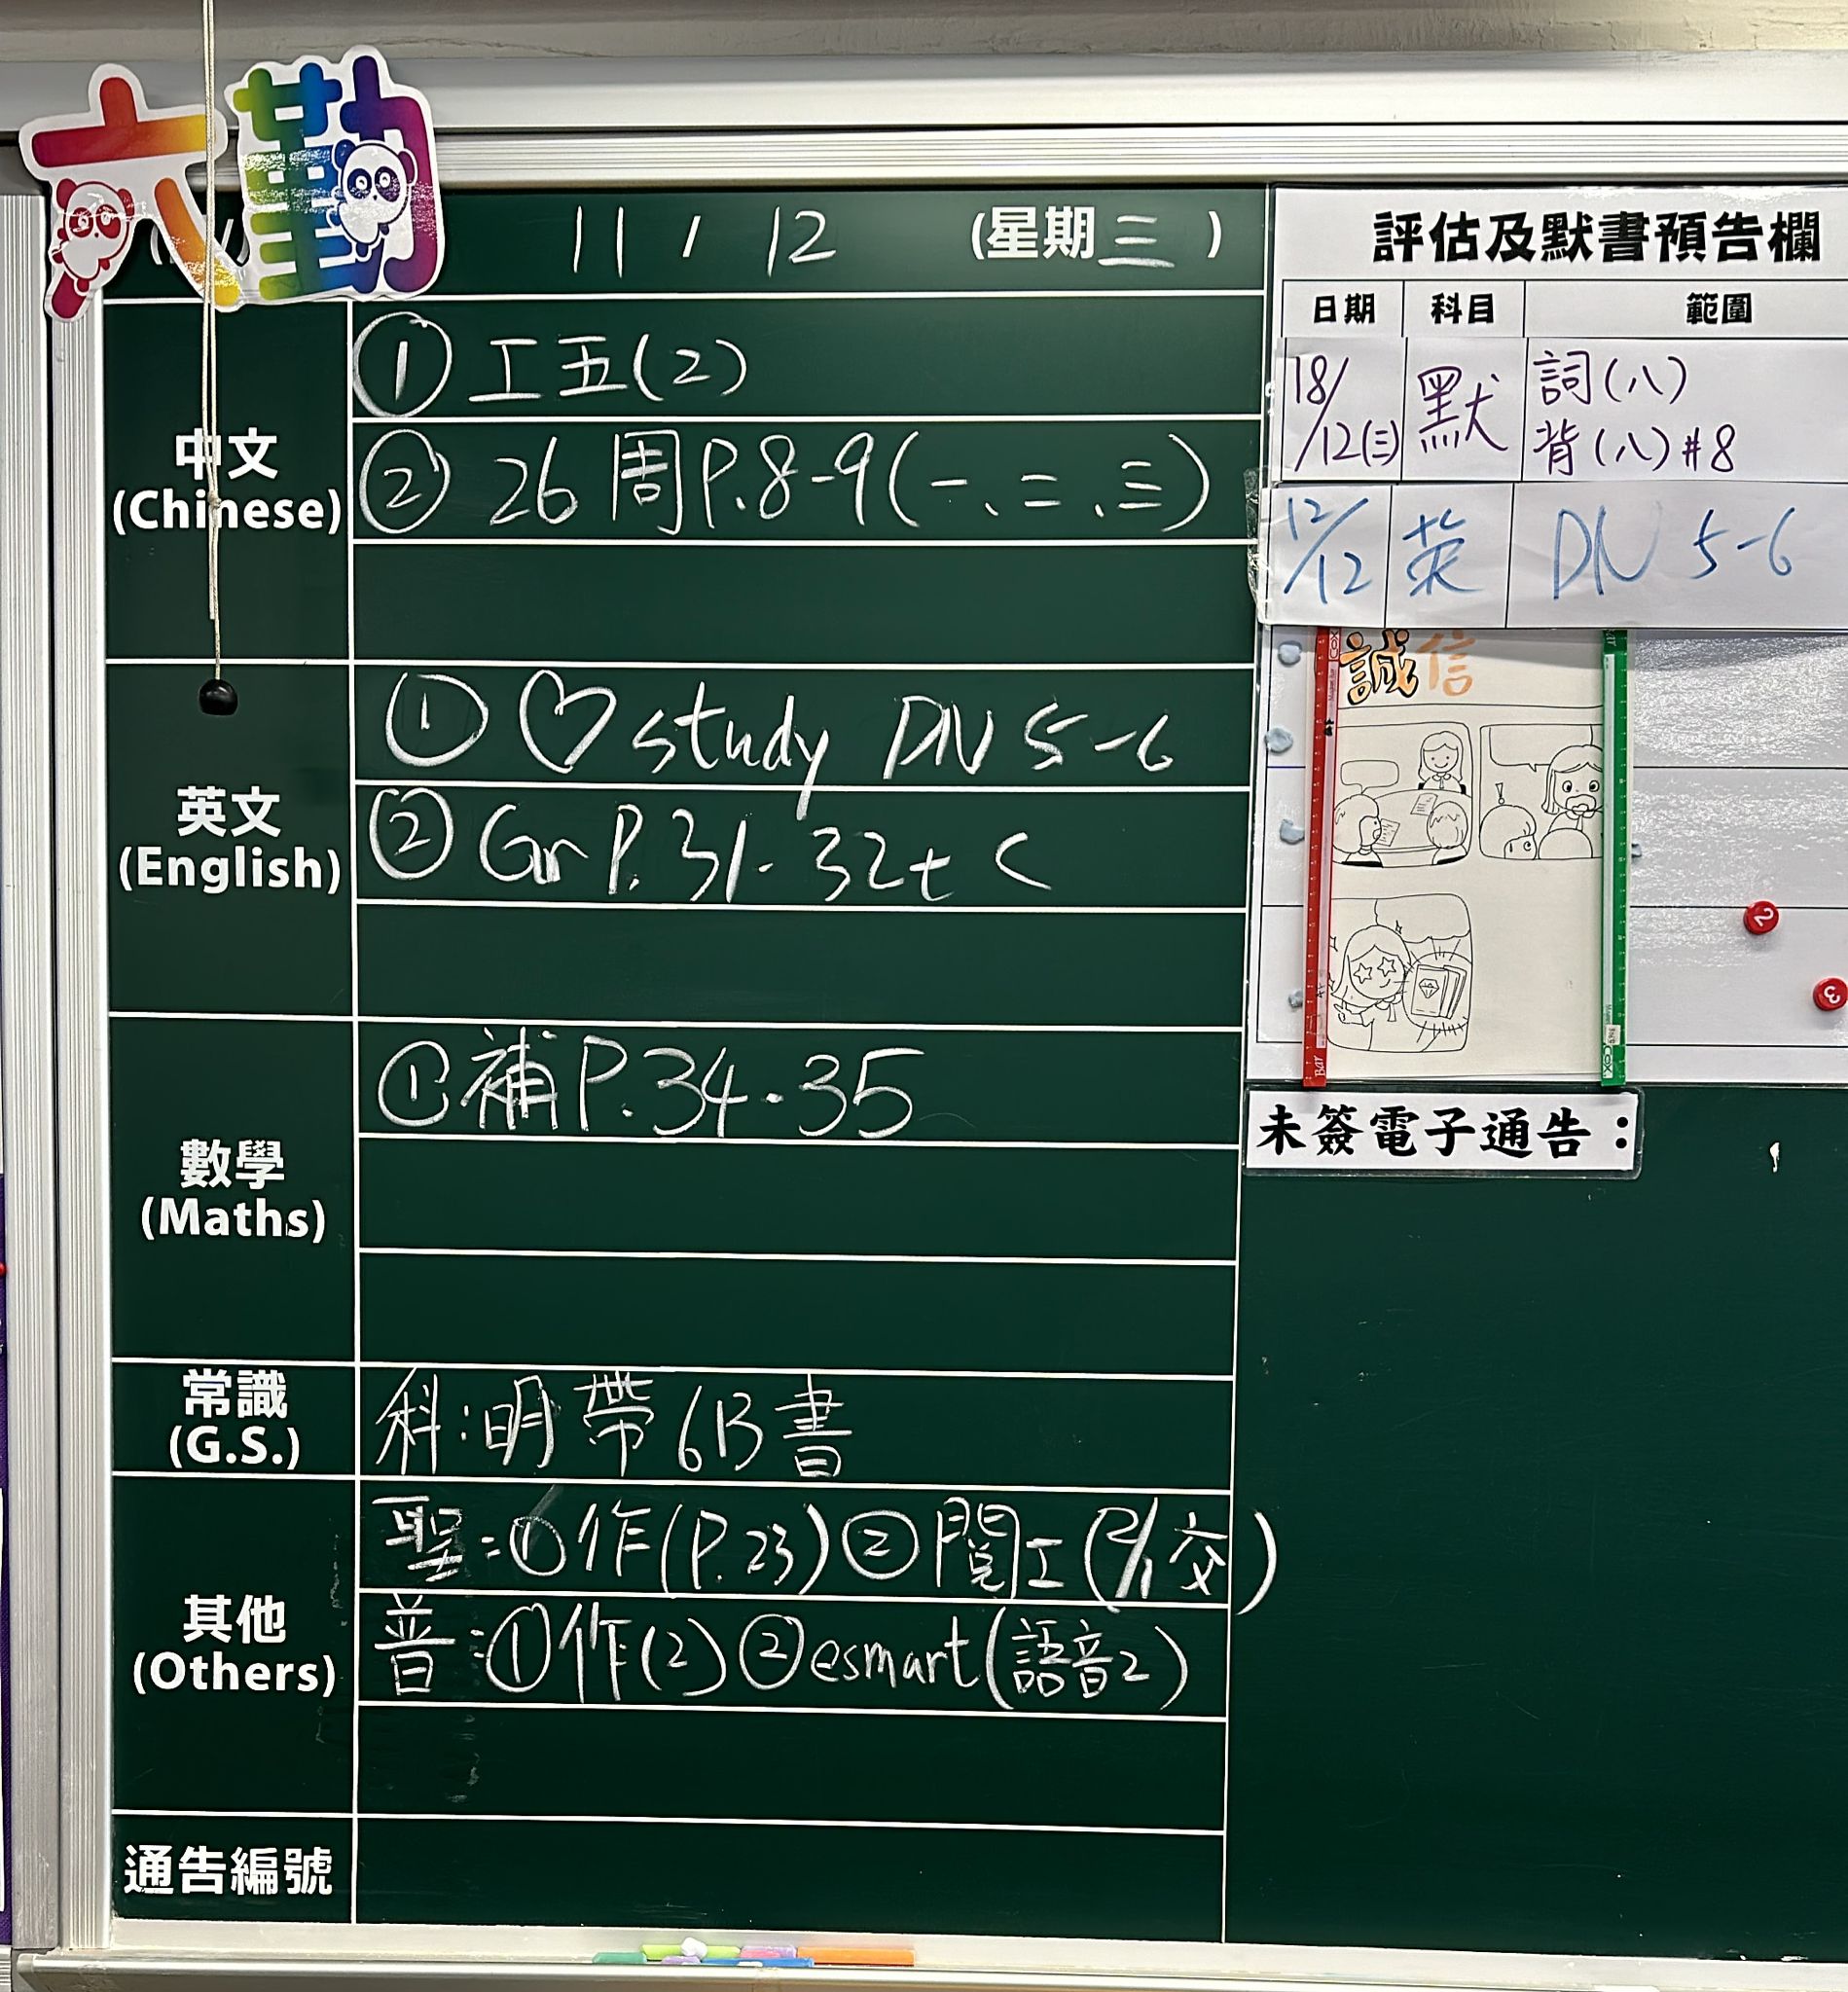 六勤
11 / 12 (星期三)
中文
(Chinese)
① 工五(2)
② 26 周P.8-9(一、二、三)
英文
(English)
① ♡ study DN 5-6
② Gr P. 31-32 + C
數學
(Maths)
① 補P.34-35
常識
(G.S.)
科:明帶6B書
其他
(Others)
聖:①作(P.23)②閱工(2/1交)
普:①作(2)②esmart(語音2)
通告編號
評估及默書預告欄
日期 科目 範圍
18/12(三) 默 詞(八)
背(八)#8
12/12 英 DN 5-6
誠信
!
2
3
未簽電子通告: